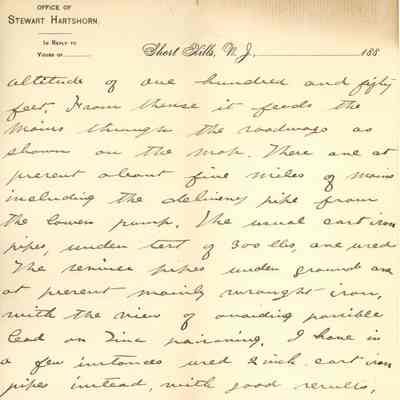 OFFICE OF
STEWART HARTSHORN.
IN REPLY TO
YOURS OF
Short Hills, N. J., 188
altitude of one hundred and fifty
feet. From thense it feeds the
mains through the roadways as
shown on the map. There are at
present about five miles of mains
including the delivery pipe from
the lower pump. The usual cast iron
pipes, under test of 300 lbs, are used
The service pipes under ground are
at present mainly wrought iron,
with the view of avoiding possible
lead or zinc poisoning. I have in
a few instances used 2 inch cast iron
pipes instead, with good results,